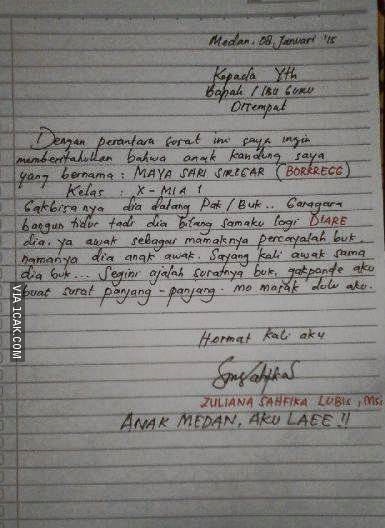 Medan, 08 Januari '15
Kepada Yth
Bapak / IBU GURU
Ditempat
Dengan perantara surat ini saya ingin
memberitahukan bahwa anak kandung saya
yang bernama : MAYA SARI SIREGAR (BORKREGG)
Kelas : X - MIA 1
Gakbisanya dia datang Pak / Buk.. Garagara
bangun tidur tadi dia bilang samaku lagi DIARE
dia. ya awak sebagai mamaknya percayalah buk.
namanya dia anak awak. Sayang kali awak sama
dia buk... Segini ajalah suratnya buk, gakpande aku
buat surat panjang - panjang. mo marak dulu aku.
Hormat kali aku
ZULIANA SAHFIKA LUBIS, MSi
ANAK MEDAN, AKU LAEE !!
VIA 1CAK.COM